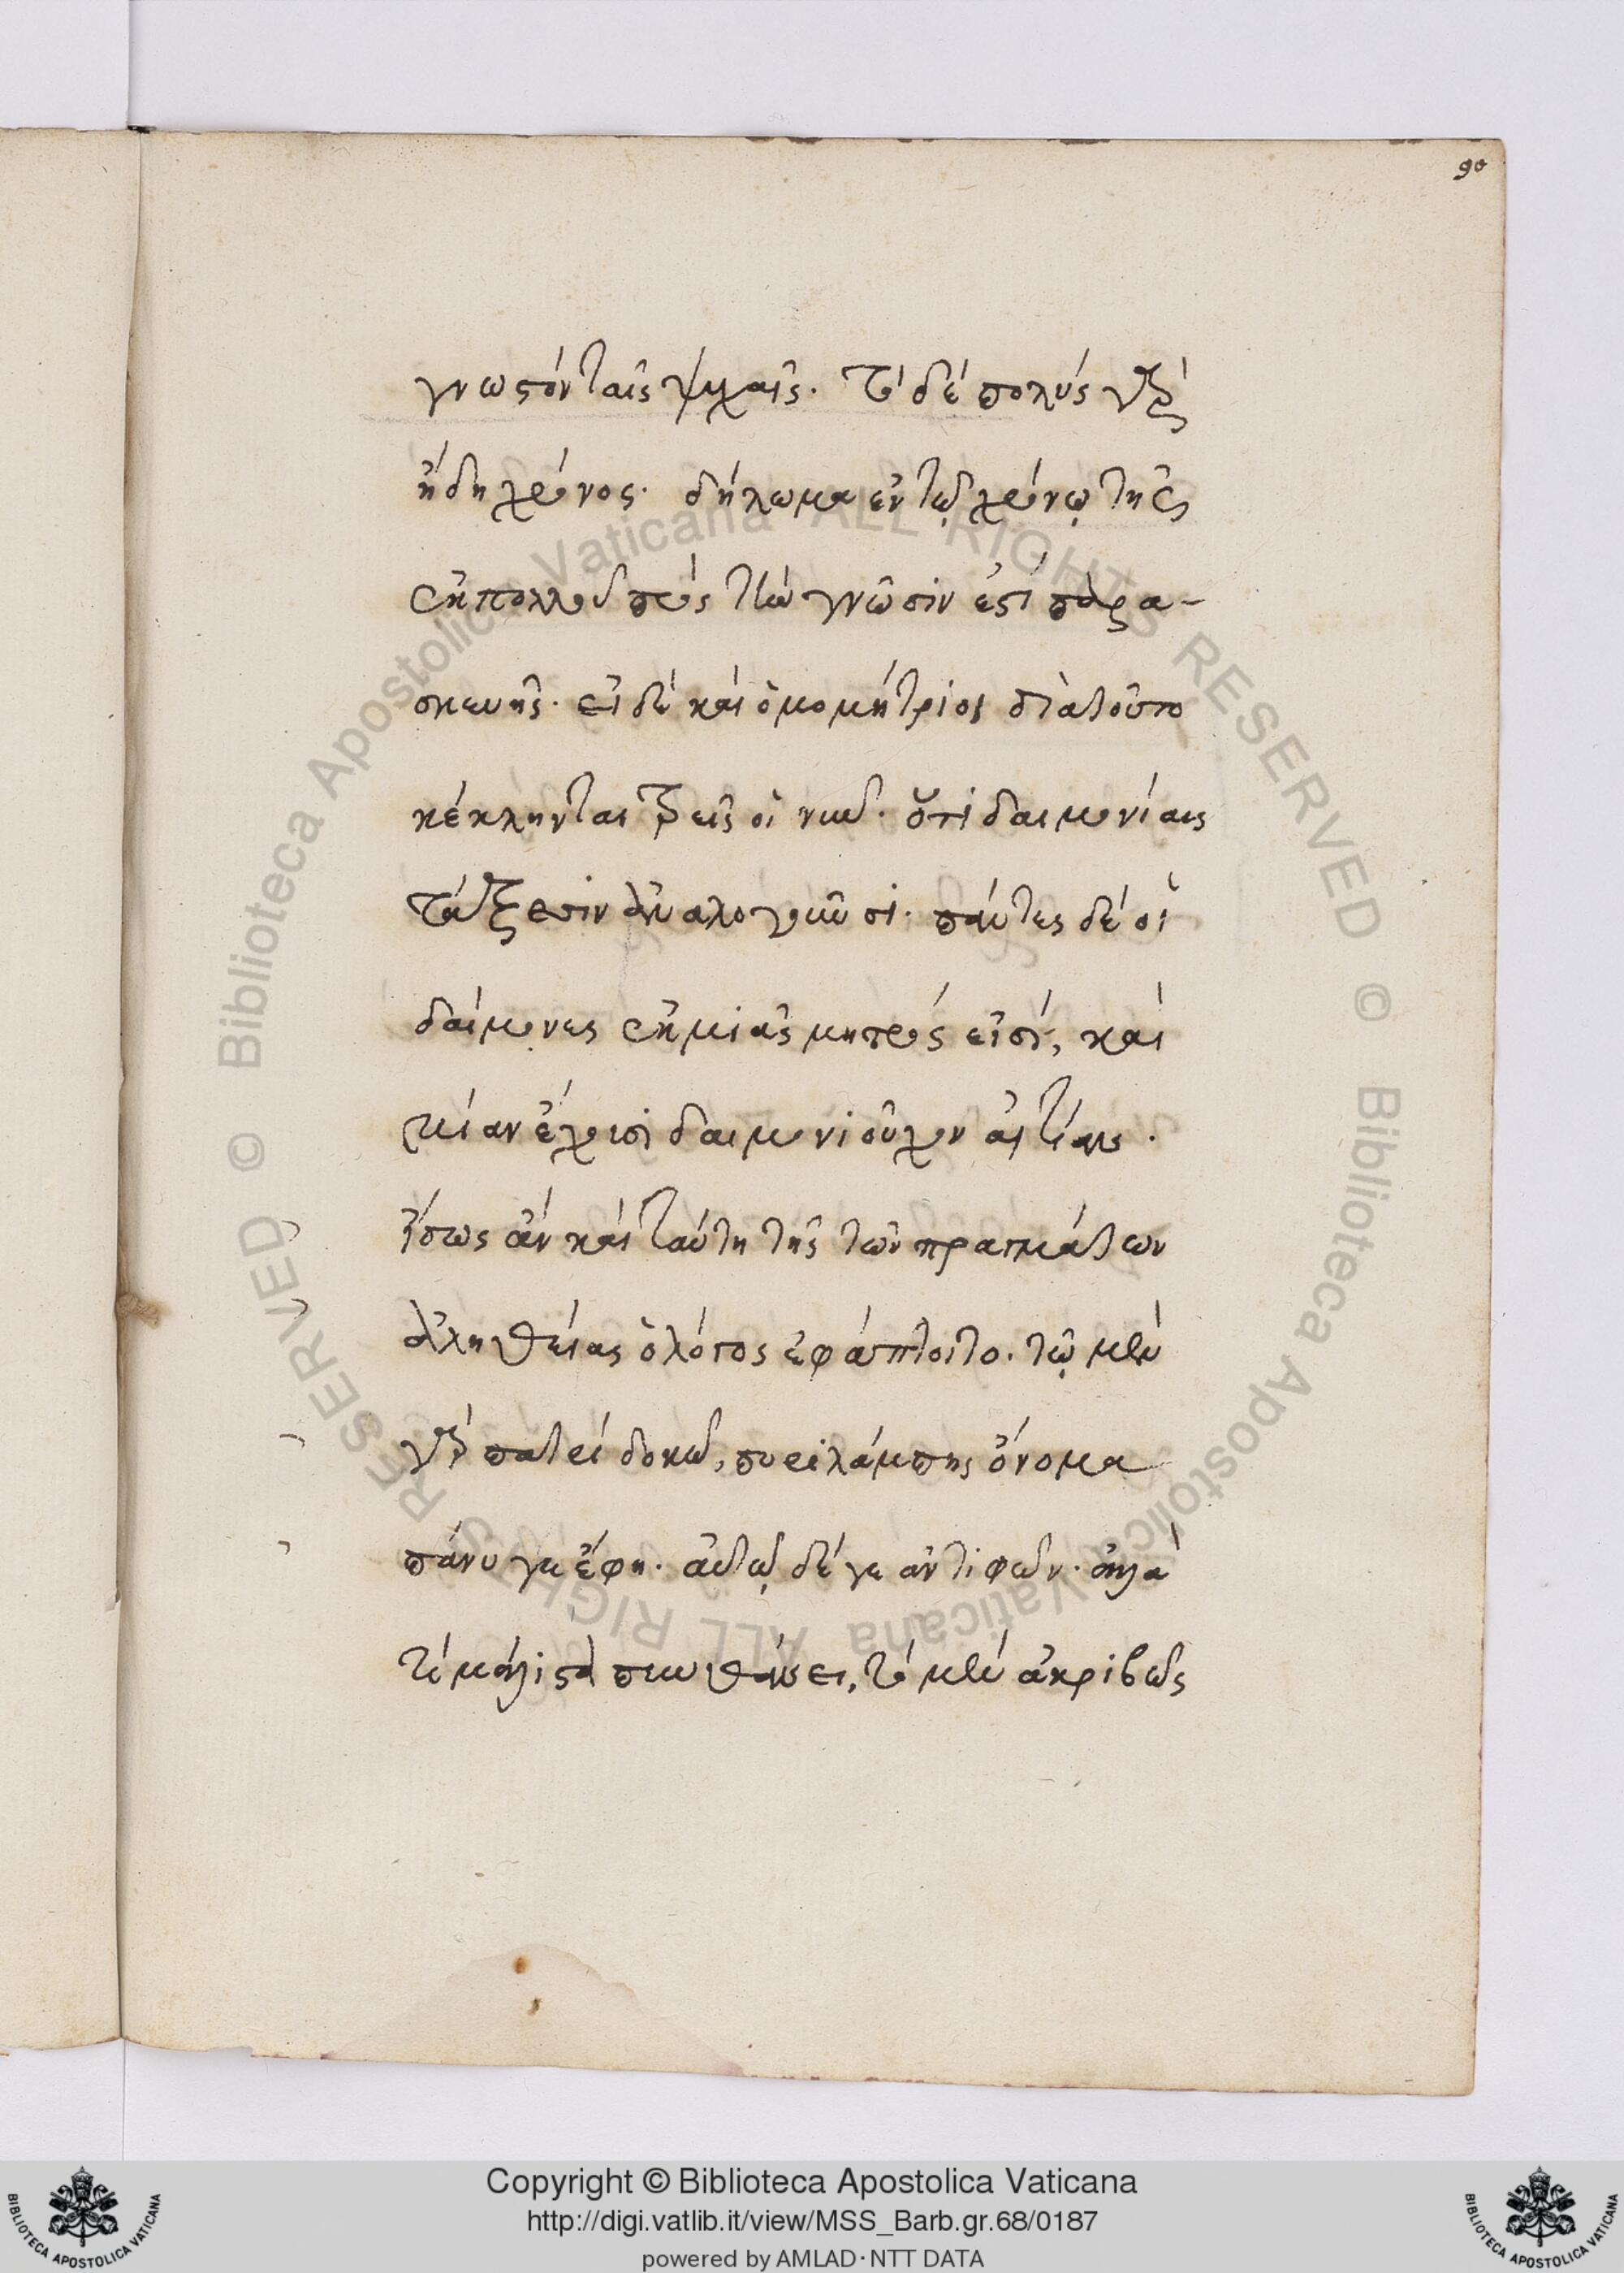 90
γνωστὸν ταῖς ψυχαῖς. τὸ δὲ πολὺς γὰρ
ἤδη χρόνος. δήλωμα ἐν τῷ χρόνῳ τῆς
ἐκ πολλοῦ πρὸς τὴν γνῶσιν ἐστὶ παρα-
σκευῆς. εἰ δὲ καὶ ὁμομήτριοι διὰ τοῦτο
κέκληνται τρεῖς οἱ νῦν. ὅτι δαιμονίαις
τάξεσιν ἀναλογοῦσι. πάντες δὲ οἱ
δαίμονες ἐκ μιᾶς μητρός εἰσι, καὶ
μίαν ἔχουσι δαιμονιοῦχον αἰτίαν.
ἴσως ἂν καὶ ταύτη τῆς τῶν πραγμάτων
ἀληθείας ὁ λόγος ἐφάπτοιτο. τῷ μὲν
γὰρ πατρὶ δοκῶ, πυριλάμπης ὄνομα
πάνυ γε ἔφη. αὐτῷ δέ γε ἀντιφῶν. ἀλλὰ
τί μάλιστα πυνθάνει, τὸ μὲν ἀκριβῶς
© Biblioteca Apostolica Vaticana ALL RIGHTS RESERVED © Biblioteca Apostolica Vaticana ALL RIGHTS RESERVED
BIBLIOTECA APOSTOLICA VATICANA
Copyright © Biblioteca Apostolica Vaticana
http://digi.vatlib.it/view/MSS_Barb.gr.68/0187
powered by AMLAD·NTT DATA
BIBLIOTECA APOSTOLICA VATICANA